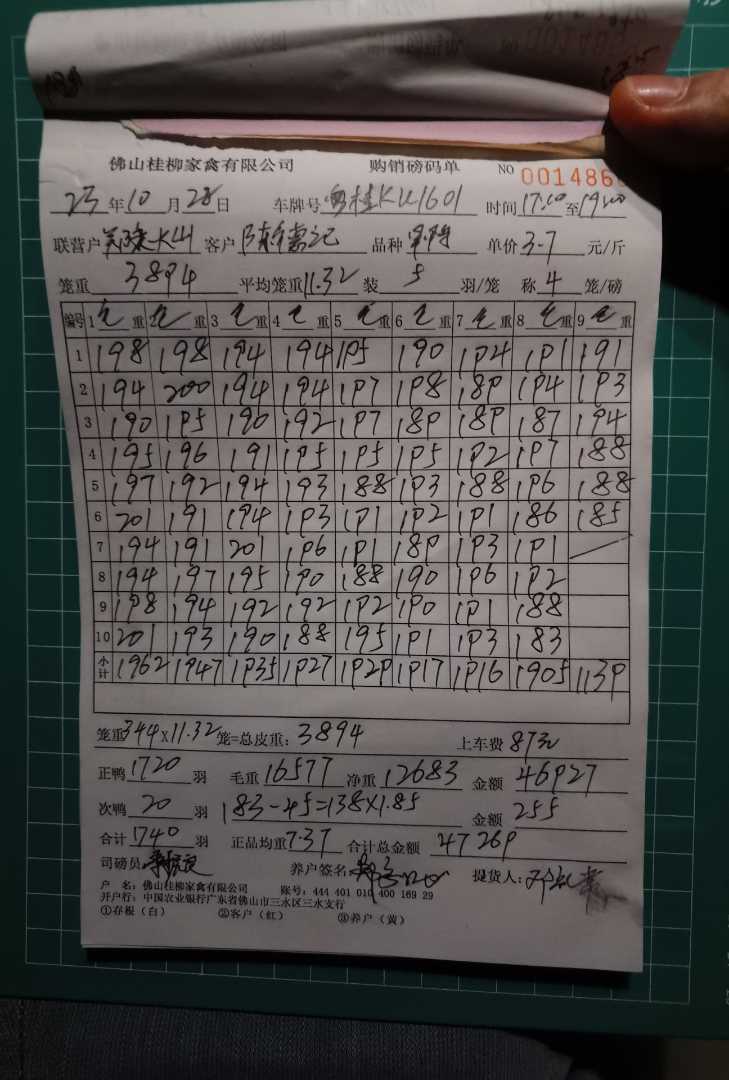 佛山桂柳家禽有限公司 购销磅码单 NO 001486
23年10月28日 车牌号 粤桂KU1601 时间17:20至19:00
联营户 客户 陈 记 品种 单价3-7元/斤
笼重 3894 平均笼重11.32 装 5 羽/笼 称 4 笼/磅
编号 1 毛重 2 毛重 3 毛重 4 毛重 5 毛重 6 毛重 7 毛重 8 毛重 9 毛重
1 198 198 194 194 195 190 194 191 191
2 194 200 194 194 197 198 189 194 193
3 190 195 190 192 197 189 189 187 194
4 195 196 191 195 195 195 192 197 188
5 197 192 194 193 188 193 188 196 188
6 201 191 194 193 191 192 191 186 185
7 194 191 201 196 191 189 193 191
8 194 197 195 190 188 190 196 192
9 198 194 192 192 192 190 191 188
10 201 193 190 188 195 191 193 183
小计 1962 1947 1935 1927 1929 1917 1916 1905 1139
笼重344X11.32笼=总皮重：3894 上车费 87元
正鸭1720羽 毛重16577 净重12683 金额 46927
次鸭 20 羽 183-45=138×1.85 金额 255
合计1740羽 正品均重7.37 合计总金额 47269
司磅员： 养户签名： 提货人：
户 名：佛山桂柳家禽有限公司 账号：444 401 010 400 169 29
开户行：中国农业银行广东省佛山市三水区三水支行
①存根（白） ②客户（红） ③养户（黄）